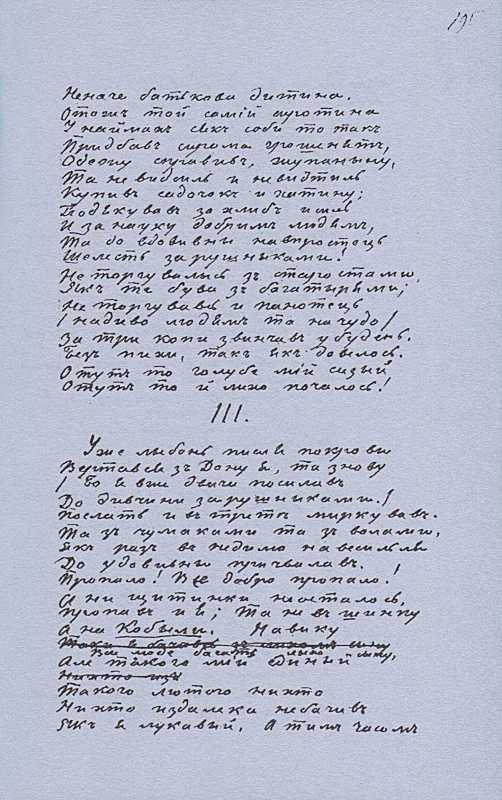 195
Неначе батькова дитина.
Отожъ той самій сиротина
У наймахъ якъ соби то такъ
Придбавъ сирома грошенятъ,
Одежу справивъ, жупанину,
Та не видсиль и невидтиль
Купивъ садочокъ и хатину;
Подякувавъ за хлибъ и силь
И за науку добримъ людямъ,
Та до вдовивни навпростець
Шелесть за рушныками!
Не торгувалысь зъ старостами
Якъ те бува зъ багатырями;
Не торгувавсь и панотець
/ на диво людямъ та на чудо /
За три копи звинчавъ у будень.
Безъ пихи, такъ якъ довелось.
Отутъ то голубе мій сизый
Отутъ то й лихо почалось!
III.
Уже либонь писля покрови
Вертався зъ Дону я, та знову
/ Бо я вже двичи посилавъ
До дивчини за рушниками. /
Послать и въ третє миркувавъ.
Та зъ чумаками та зъ волами,
Якъ разъ въ недилю на весильля
До удовивны причвалавъ.
Пропало! Все добро пропало!
А ни щетинки неосталось,
Пропавъ и я; Та не въ шинку
А на Кобыли. Навику
Всі люде бачать лыхо сыну,
Але такого мій єдиный
Нихто изъ
Такого лютого нихто
Нихто издалека небачивъ
Якъ я лукавый. А тимъ часомъ